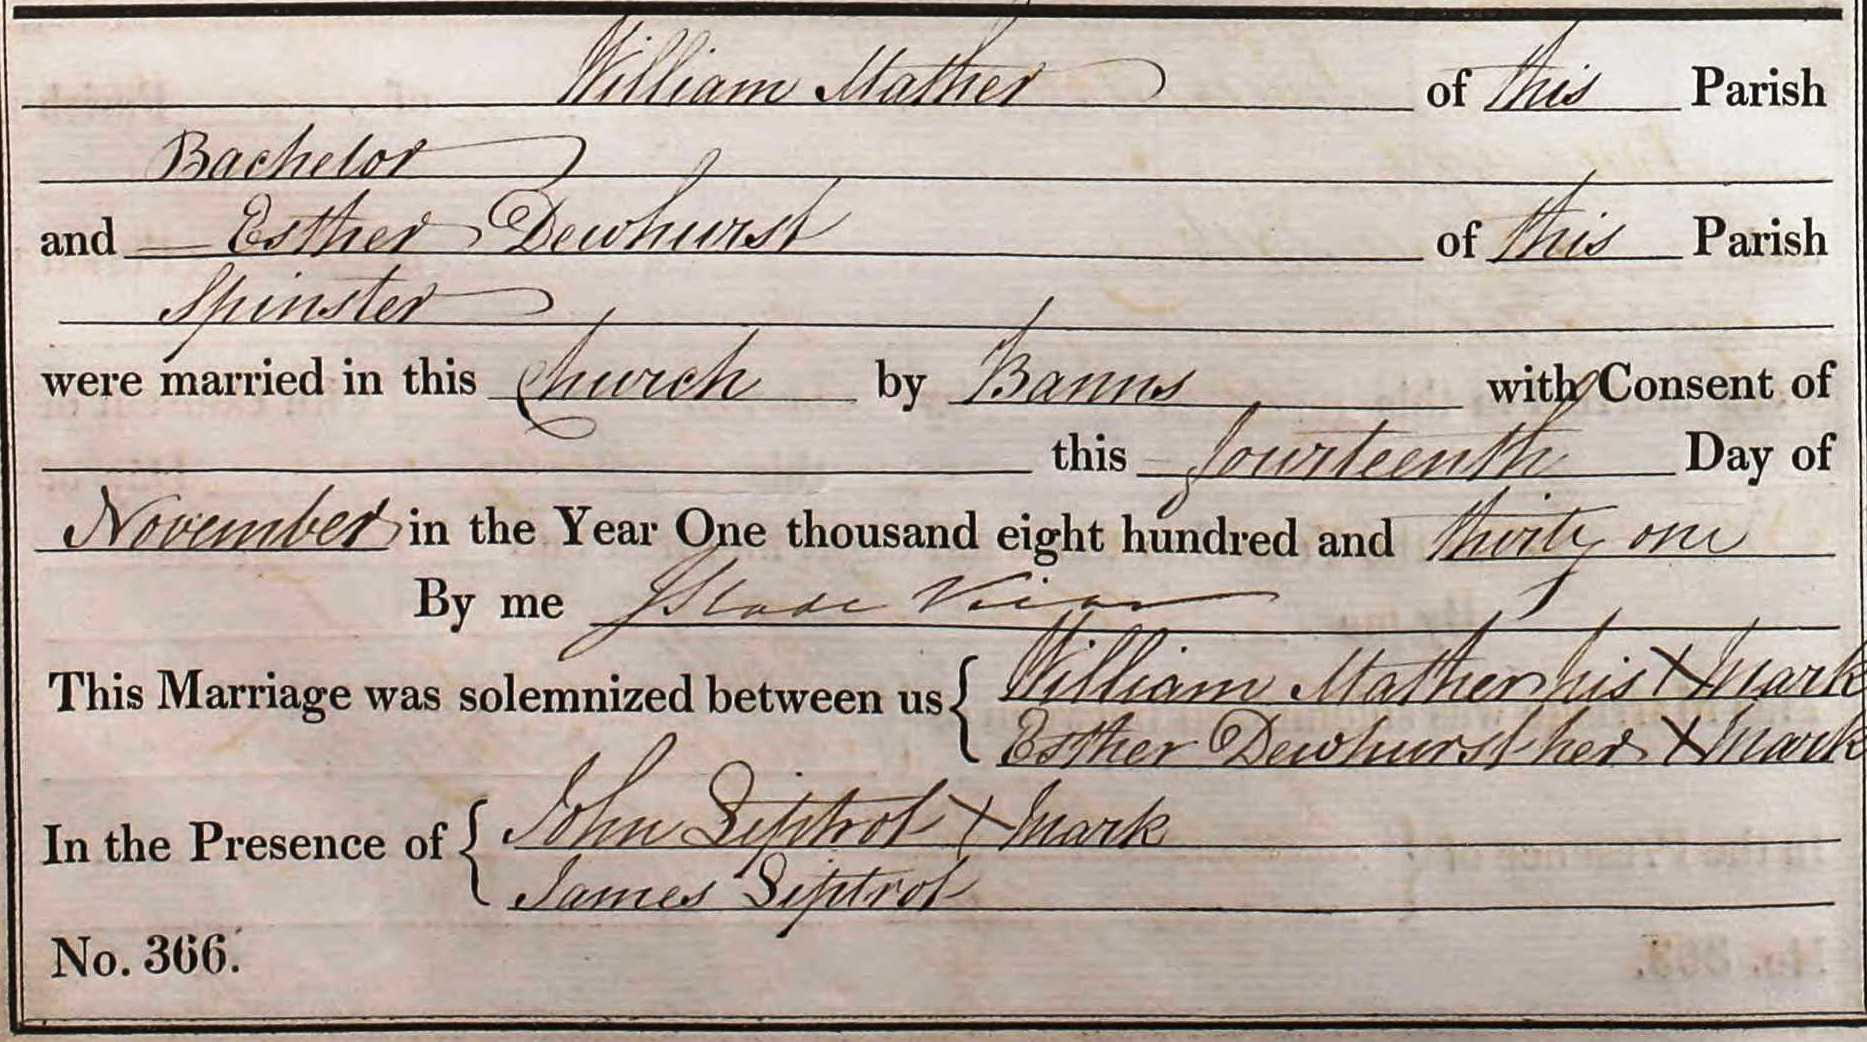 William Mather of this Parish
Bachelor
and Esther Dewhurst of this Parish
Spinster
were married in this Church by Banns with Consent of
this fourteenth Day of
November in the Year One thousand eight hundred and thirty one
By me J Slade Vicar
This Marriage was solemnized between us { William Mather his X Mark
Esther Dewhurst her X Mark
In the Presence of { John Siptrot X Mark
James Siptrot
No. 366.